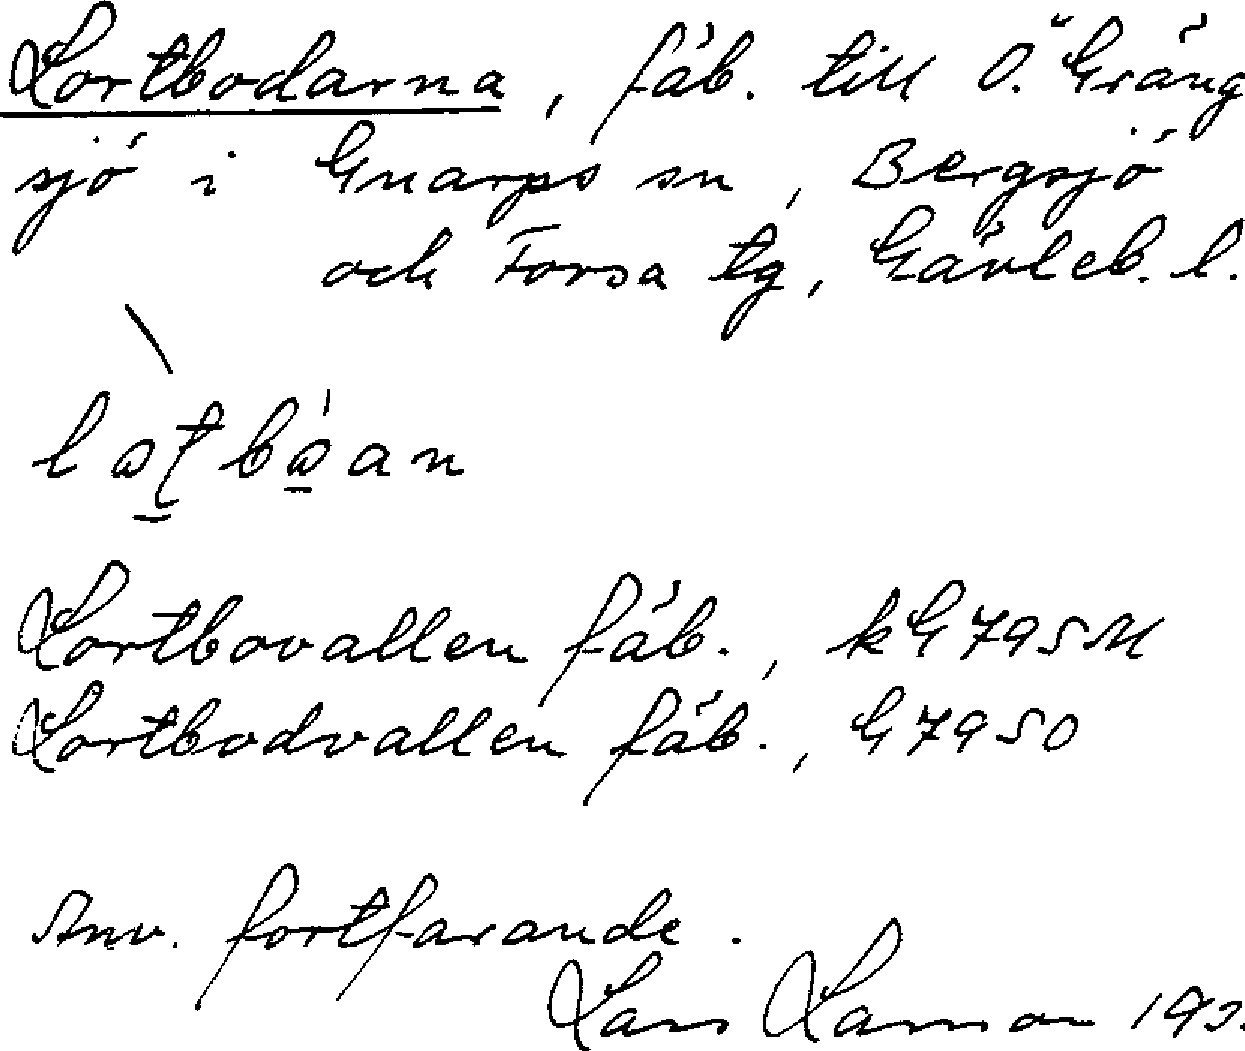 Lortbodarna, fäb. till Ö. Gräng
sjö i Gnarps sn, Bergsjö
och Forsa tg, Gävleb. l.
Lortbovallen fäb., kG 795 M
Lortbodvallen fäb., G 7950
Anv. fortfarande.
Lars Larsson 193